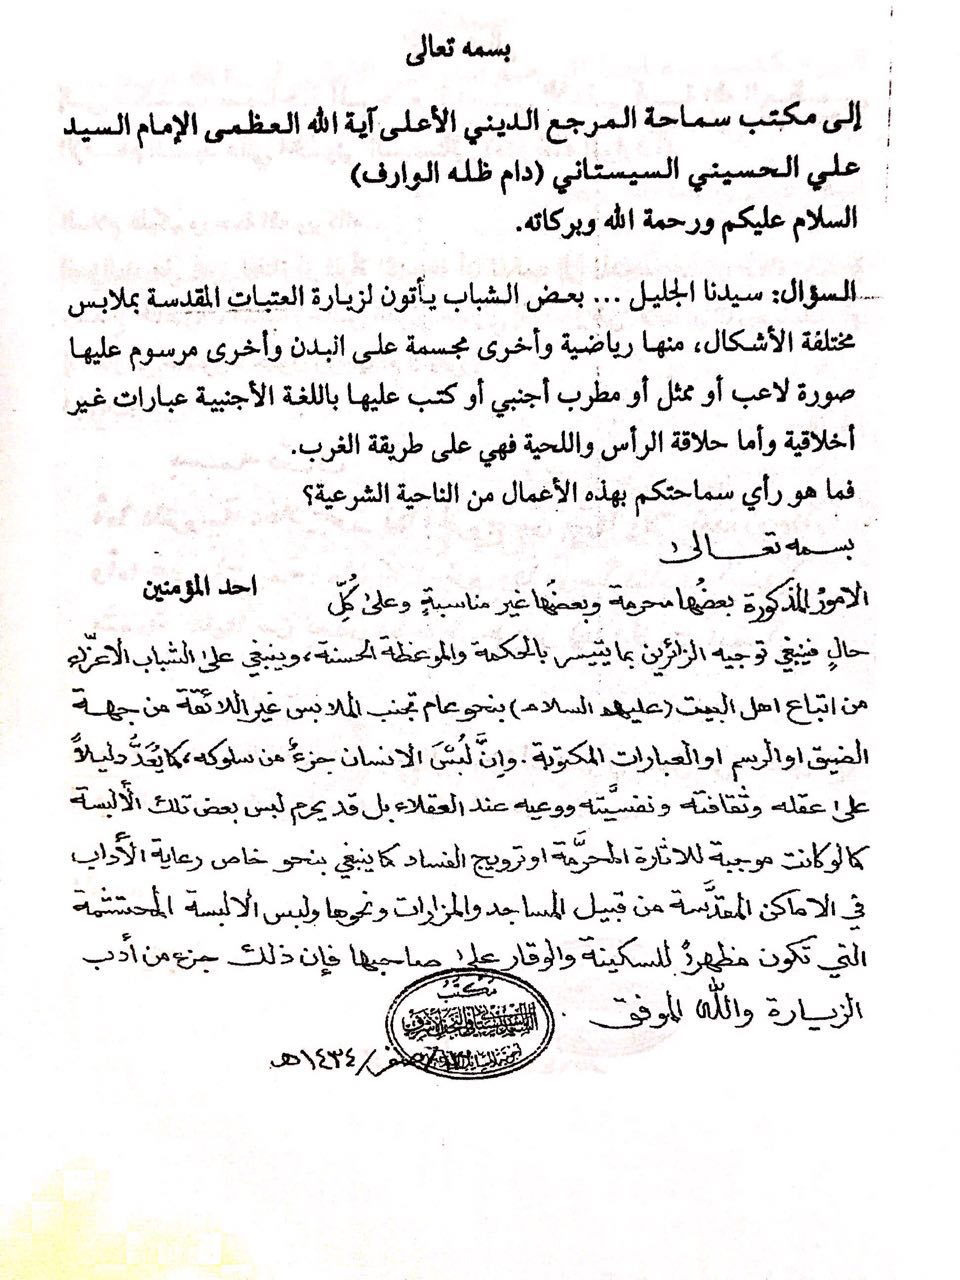 بسمه تعالى
إلى مكتب سماحة المرجع الديني الأعلى آية الله العظمى الإمام السيد
علي الحسيني السيستاني (دام ظله الوارف)
السلام عليكم ورحمة الله وبركاته.
السؤال: سيدنا الجليل ... بعض الشباب يأتون لزيارة العتبات المقدسة بملابس
مختلفة الأشكال، منها رياضية وأخرى مجسمة على البدن وأخرى مرسوم عليها
صورة لاعب أو ممثل أو مطرب أجنبي أو كتب عليها باللغة الأجنبية عبارات غير
أخلاقية وأما حلاقة الرأس واللحية فهي على طريقة الغرب.
فما هو رأي سماحتكم بهذه الأعمال من الناحية الشرعية؟
احد المؤمنين
بسمه تعالى
الامورُ المذكورة بعضُها محرمة وبعضُها غير مناسبةٍ وعلى كُلِّ
حالٍ فينبغي توجيه الزائرين بما يتيسر بالحكمة والموعظة الحسنة، وينبغي على الشباب الاعزّاء
من اتباع اهل البيت (عليهم السلام) بنحو عام تجنب الملابس غير اللائقة من جهة
الضيق او الرسم او العبارات المكتوبة. وإنَّ لُبْسَ الانسان جزءٌ من سلوكه، كما يُعَدُّ دليلاً
على عقله وثقافته ونفسيَّته ووعيه عند العقلاء بل قد يحرم لبس بعض تلك الألبسة
كما لو كانت موجبة للاثارة المحرَّمة او ترويج الفساد كما ينبغي بنحو خاص رعاية الأداب
في الاماكن المقدَّسة من قبيل المساجد والمزارات ونحوها ولبس الالبسة المحتشمة
التي تكون مظهرةً للسكينة والوقار على صاحبها فإن ذلك جزء من أدب
الزيارة والله الموفق.
مكتب
صفر/١٤٣٤هـ